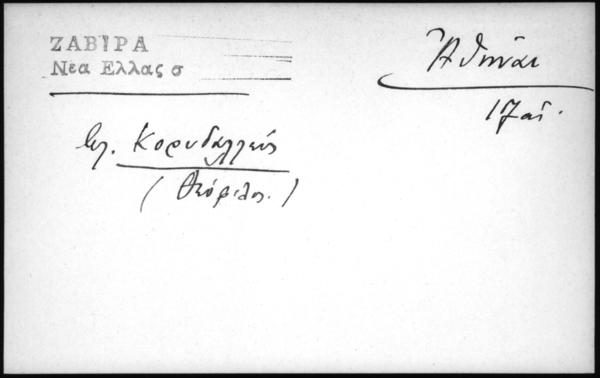 ΖΑΒΙΡΑ
Νέα Ελλας σ
Ἀθῆναι
17 αἰ.
βλ. Κορυδαλλεύς
(Θεόφιλος.)